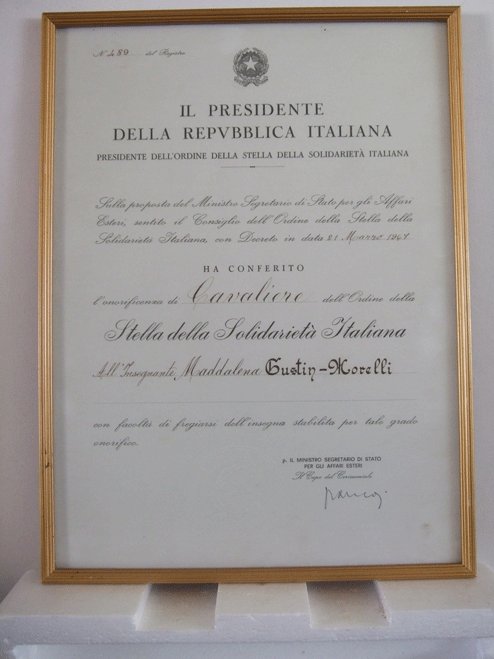 N. 489 del Registro
IL PRESIDENTE
DELLA REPVBBLICA ITALIANA
PRESIDENTE DELL'ORDINE DELLA STELLA DELLA SOLIDARIETÀ ITALIANA
Sulla proposta del Ministro Segretario di Stato per gli Affari
Esteri, sentito il Consiglio dell'Ordine della Stella della
Solidarietà Italiana, con Decreto in data 21 Marzo
HA CONFERITO
l'onorificenza di Cavaliere dell'Ordine della
Stella della Solidarietà Italiana
All'Insegnante Maddalena Gustin-Morelli
con facoltà di fregiarsi dell'insegna stabilita per tale grado
onorifico.
p. IL MINISTRO SEGRETARIO DI STATO
PER GLI AFFARI ESTERI
Il Capo del Cerimoniale